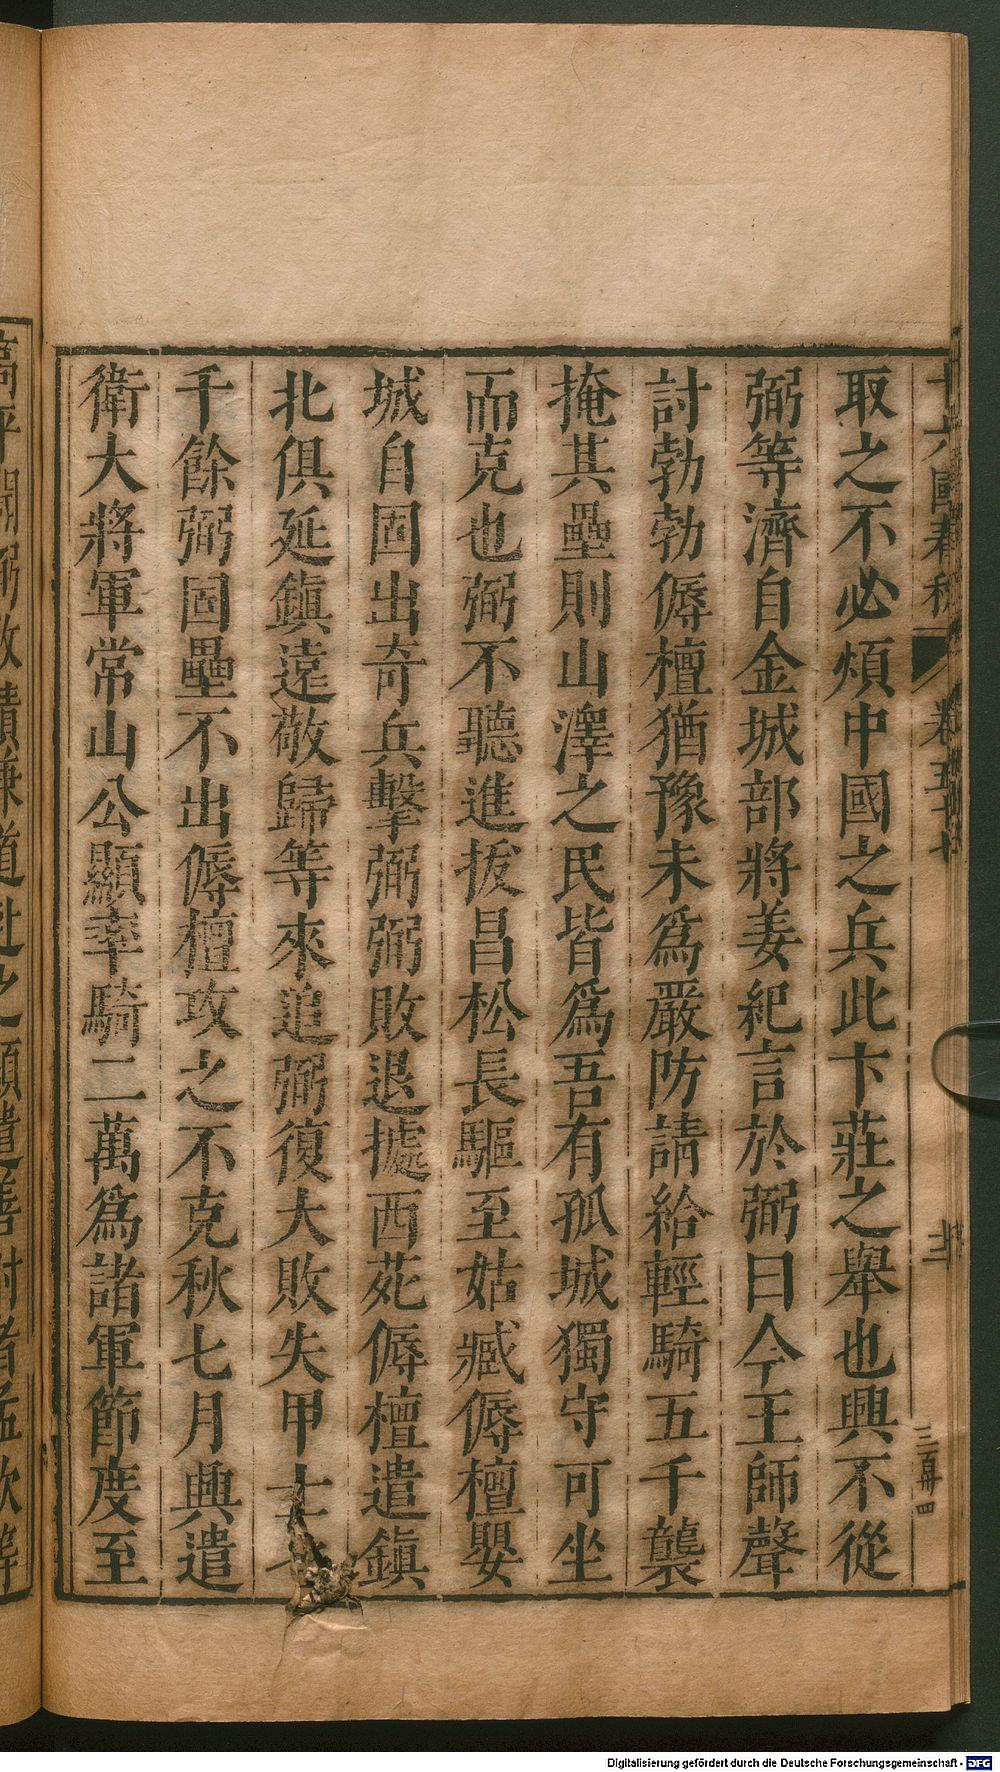 十六國春秋 卷五十七 三 三百冊四
取之不必煩中國之兵此卞莊之舉也興不從
弼等濟自金城部將姜紀言於弼曰今王師聲
討勃勃傉檀猶豫未為嚴防請給輕騎五千襲
掩其壘則山澤之民皆為吾有孤城獨守可坐
而克也弼不聽進拔昌松長驅至姑臧傉檀嬰
城自固出奇兵擊弼弼敗退據西苑傉檀遣鎮
北俱延鎮遠敬歸等來追弼復大敗失甲士
千餘弼固壘不出傉檀攻之不克秋七月興遣
衛大將軍常山公顯率騎二萬為諸軍節度至
高平聞弼敗績兼道赴之顯遣善射者孟欽等
Digitalisierung gefördert durch die Deutsche Forschungsgemeinschaft - DFG